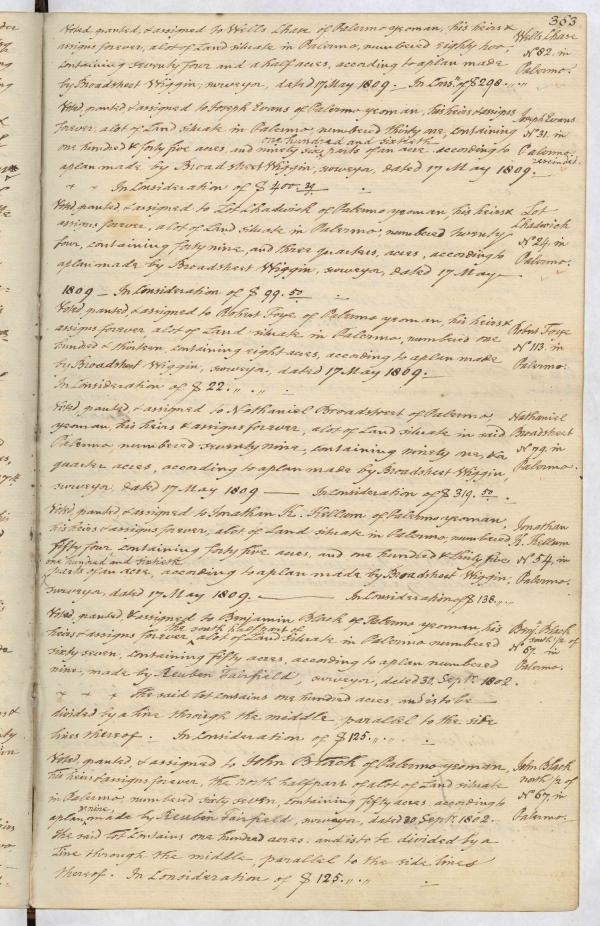 363
Voted, granted, & assigned to Wells Chase of Palermo yeoman, his heirs &
assigns forever, a lot of Land situate in Palermo, numbered eighty two;
containing seventy four and a half acres, according to a plan made
by Broadstreet Wiggin, surveyor, dated 17 May 1809. In Consn. of $298.,,.,,
Wells Chase
No 82. in
Palermo.
Voted, granted & assigned to Joseph Evans of Palermo yeoman, his heirs & assigns
forever, a lot of Land situate in Palermo, numbered thirty one, containing
one hundred & forty five acres, and ninety six one hundred and sixtieth parts of an acre according to
a plan made by Broadstreet Wiggin, surveyor, dated 17 May 1809.
In Consideration of $400.
Joseph Evans
No 31. in
Palermo.
rescinded.
Voted, granted, & assigned to Lot Chadwick of Palermo yeoman, his heirs &
assigns forever, a lot of Land situate in Palermo, numbered twenty
four, containing forty nine, and three quarters, acres, according to
a plan made by Broadstreet Wiggin, surveyor, dated 17 May
1809 — In Consideration of $99.50
Lot
Chadwick
No 24. in
Palermo.
Voted, granted & assigned to Robert Foye of Palermo yeoman, his heirs &
assigns forever, a lot of Land situate in Palermo, numbered one
hundred & thirteen, containing eight acres, according to a plan made
by Broadstreet Wiggin, surveyor, dated 17 May 1809.
In Consideration of $22.,,.,,
Robert Foye
No 113. in
Palermo.
Voted, granted & assigned to Nathaniel Broadstreet of Palermo,
yeoman, his heirs & assigns forever, a lot of Land situate in said
Palermo, numbered seventy nine, containing ninety one, & a
quarter acres, according to a plan made by Broadstreet Wiggin,
surveyor, dated 17 May 1809 — In Consideration of $319.50
Nathaniel
Broadstreet
No 79. in
Palermo.
Voted, granted, & assigned to Jonathan K. Kellom of Palermo yeoman,
his heirs & assigns forever, a lot of Land situate in Palermo, numbered
fifty four containing forty five acres, and one hundred & thirty five
one hundred and sixtieth
parts of an acre, according to a plan made by Broadstreet Wiggin,
surveyor, dated 17 May 1809. — In Consideration of $138.,,.,,
Jonathan
K. Kellom
No 54, in
Palermo.
Voted, granted, & assigned to Benjamin Black of Palermo yeoman, his
heirs & assigns forever, the south half part of a lot of Land situate in Palermo numbered
sixty seven, containing fifty acres, according to a plan numbered
nine, made by Reuben Fairfield, surveyor, dated 30 Septr. 1802
The said Lot contains one hundred acres, and is to be
divided by a line through the middle parallel to the side
lines thereof. In Consideration of $125.,,.,,
Benj. Black
south 1/2 of
No 67. in
Palermo.
Voted, granted, & assigned to John Black of Palermo yeoman
his heirs & assigns forever, the north half part of a lot of Land situate
in Palermo, numbered sixty seven, containing fifty acres, according to
a plan, no nine, made by Reuben Fairfield, surveyor, dated 30 Septr. 1802.
The said Lot contains one hundred acres. and is to be divided by a
Line through the middle, parallel to the side lines
thereof. In Consideration of $125.,,.,,
John Black
north 1/2 of
No 67, in
Palermo.